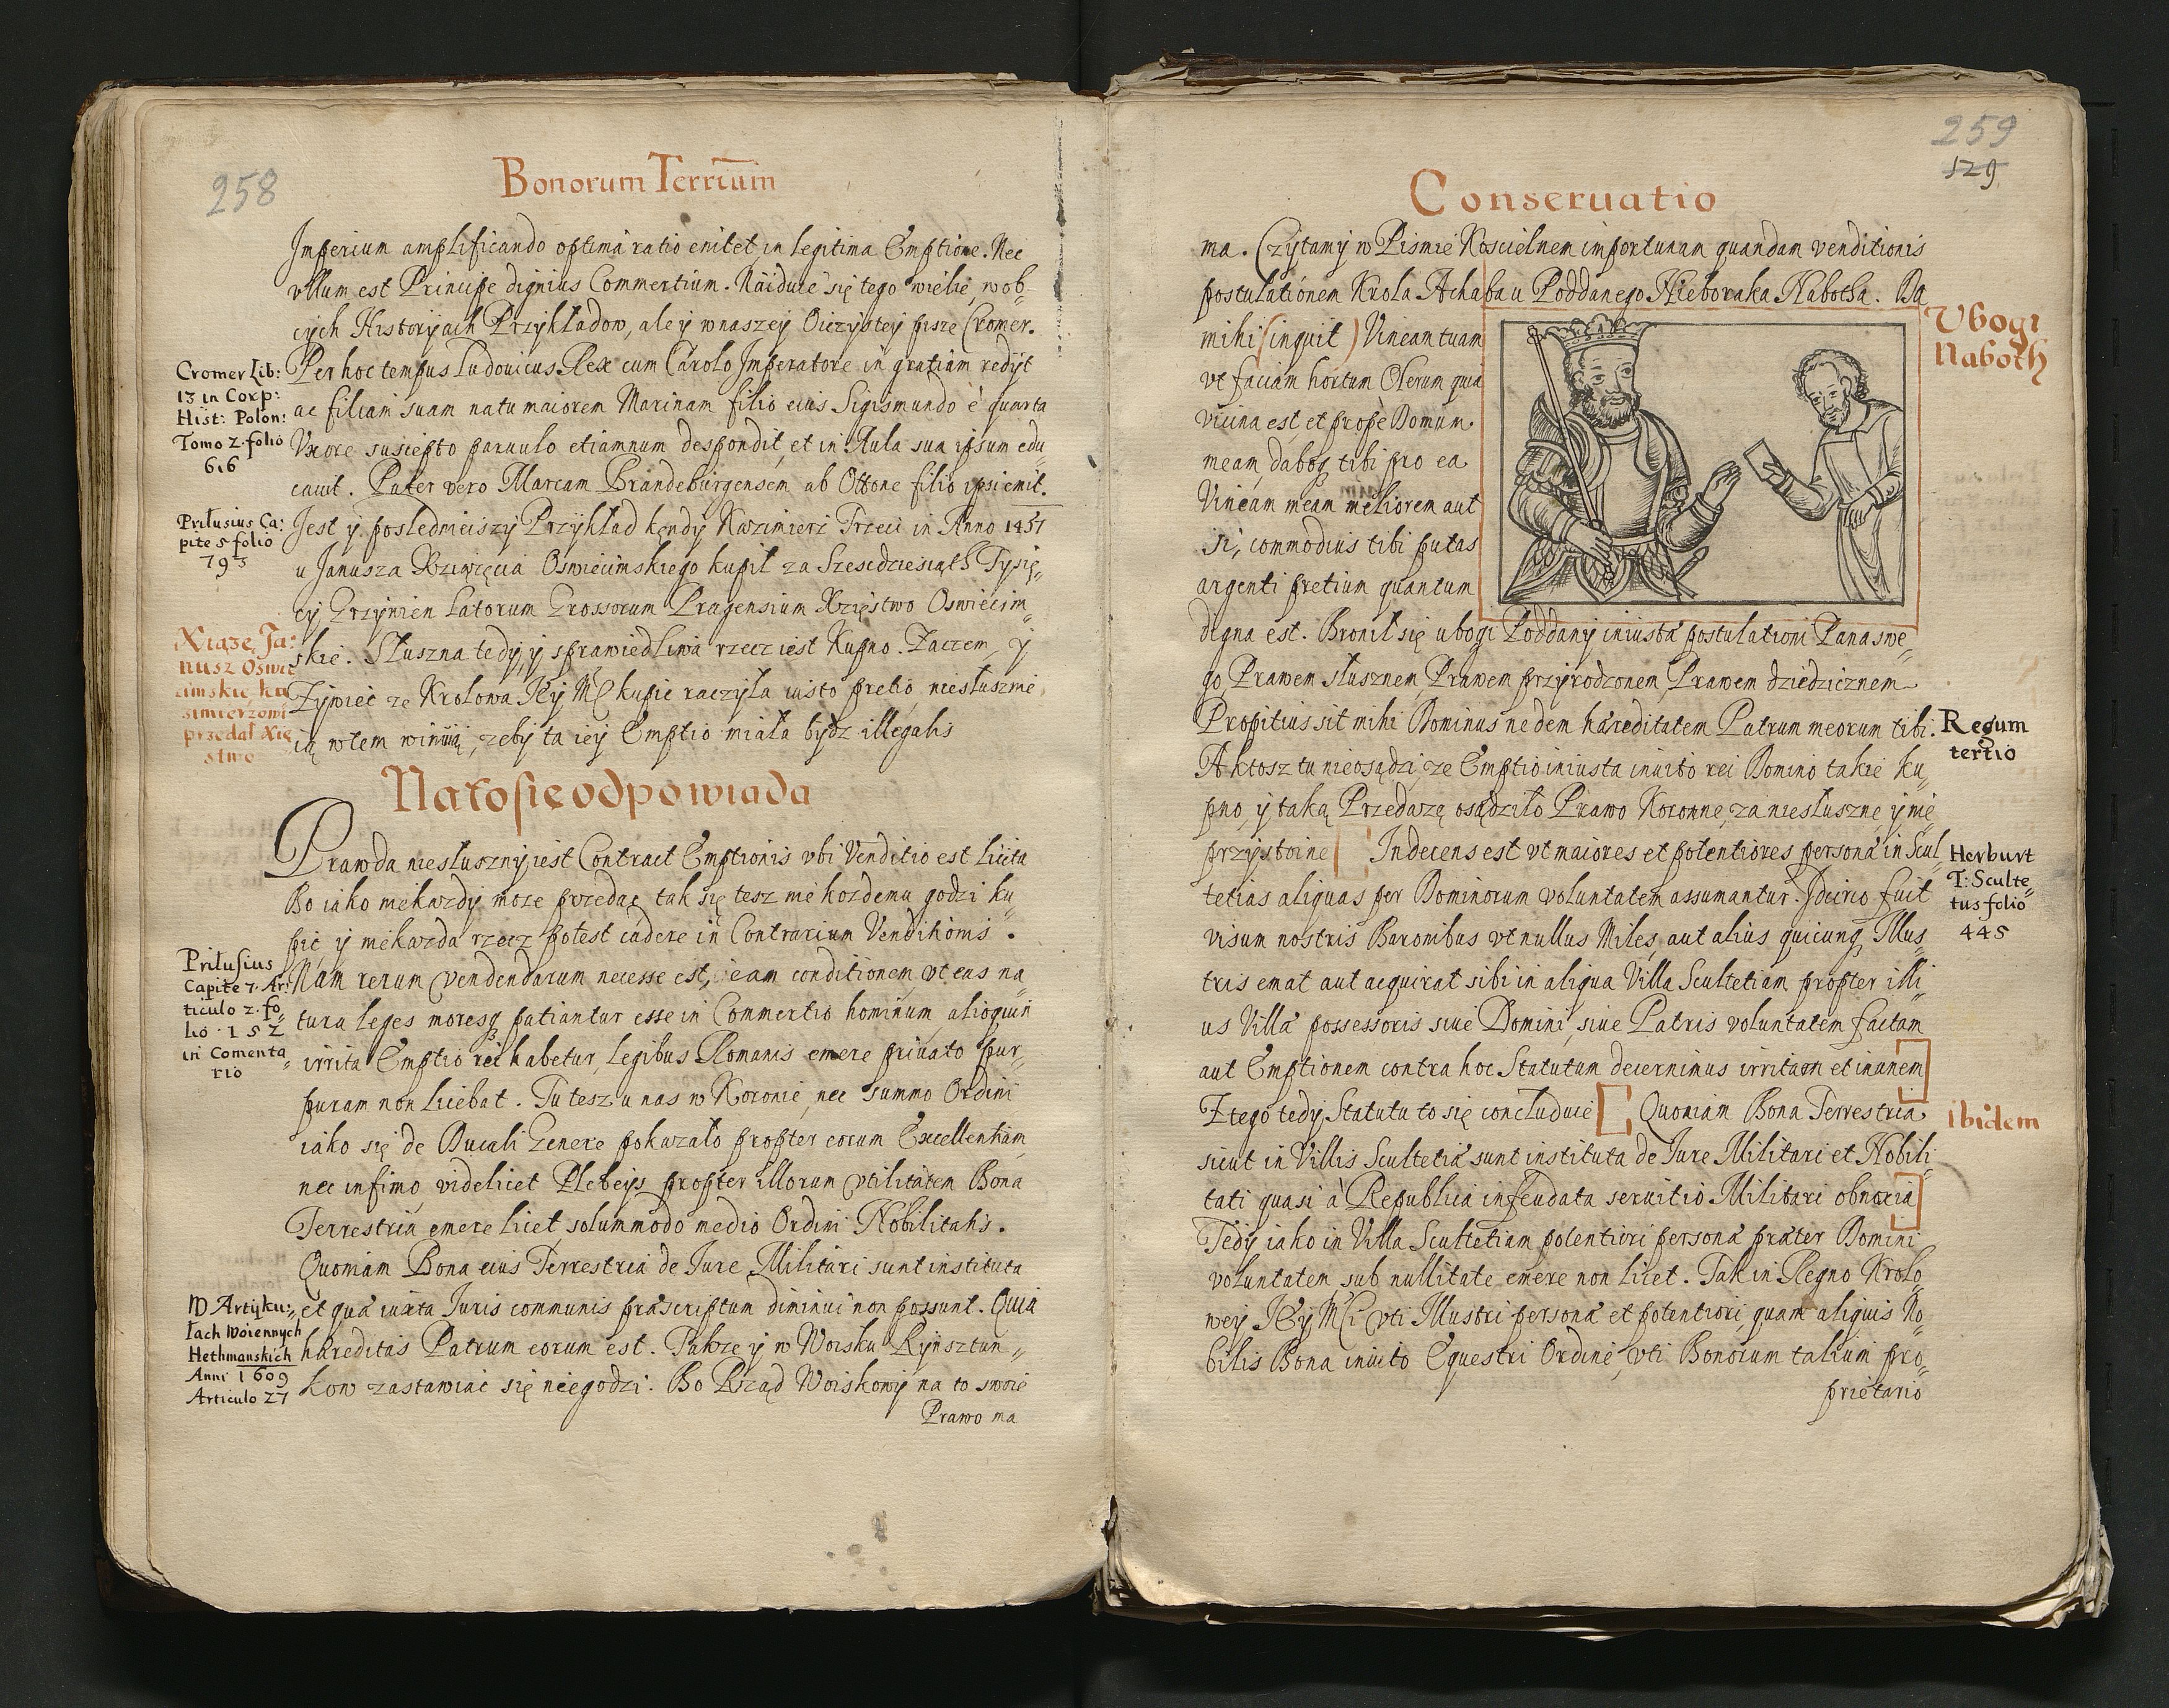 258
Bonorum Terrium
Imperium amplificando optima ratio enitet in legitima Emptione. Nec
vllum est Principe dignius Commertium. Naiduie się tego wielie, w ob„
cych Historyiach Przykładow, ale y w naszey Oiczystey pisze Cromer.
Per hoc tempus Ludouicus Rex cum Carolo Imperatore in gratiam redyt
ac filiam suam natu maiorem Marinam filio eius Sigismundo è quarta
Vxore suscepto paruulo etiamnum despondit, et in Aula sua ipsum edu„
cauit. Pater vero Marcam Brandeburgensem ab Ottone filio ipsi emit.
Jest y poslednieiszy Przykład kędy Kazimierz Trzeci in Anno 1457
u Janusza Xiązęcia Oswiecimskiego kupił za Szescdziesiąth Tysię„
cy Grzywien Latorum Grossorum Pragensium Xzięstwo Oswiecim„
skie. Słuszna tedy, y sprawiedliwa rzecz iest Kupno. Zaczem y
Zywiec ze Krolowa Jey Mć kupic raczyła iusto pretio niesłusznie
ią w tem winuią, zeby ta iey Emptio miała bydz illegalis
Cromer Lib:
13 in Corp:
Hist: Polon:
Tomo 2. folio
616
Prilusius Ca:
pite 5 folio
793
Xiąze Ja:
nusz Oswie
cimskie ka
zimierzowi
przedał Xię
stwo
Na to sie odpowiada
Prawda niesłuszny iest Contract Emptionis vbi Venditio est licita
Bo iako niekazdy moze przedac tak się tesz nie kozdemu godzi ku„
pic y niekazda rzecz potest cadere in Contrarium Venditionis.
Nam rerum vendendarum necesse est, eam conditionem, vt eas na„
tura leges moresq patiantur esse in Commertio hominum, alioquin
irrita Emptio rei habetur, legibus Romanis emere priuato pur„
puram non licebat. Tu tesz u nas w Koronie, nec summo Ordini
iako się de Ducali Genere pokazało propter eorum Excellentiam
nec infimo, videlicet Plebeys propter illorum vtilitatem Bona
Terrestria emere licet, solummodo medio Ordini Nobilitatis.
Quoniam Bona eius Terrestria de Iure Militari sunt instituta
et quæ iuxta Iuris communis præscriptum diminui non possunt. Quia
hæreditas Patrum eorum est. Takze y w Woisku Rynsztun„
kow zastawiac się niegodzi. Bo Rząd Woiskowy na to swoie
Prawo ma
Prilusius
Capite 7. Ar:
ticulo 2. fo„
lio. 152
in Comenta„
rio
W Artyku:„
łach Woiennych
Hethmanskich
Anni 1609
Articulo 27
259
129
Conseruatio
ma. Czytamy w Pismie Koscielnem importunam quandam venditionis
postulationem Krola Achaba u Poddanego Nieboraka Nabotha. Da
mihi (inquit) Vineam tuam
vt faciam hortum Olerum quia
vicina est, et prope Domum
meam, daboq tibi pro ea
Vineam meam meliorem aut
si, commodius tibi putas
argenti pretium quantum
digna est. Bronił się ubogi Poddany iniusta postulationi Pana swe„
go, Prawem słusznem, Prawem przyrodzonem, Prawem dziedzicznem
Propitius sit mihi Dominus ne dem hæreditatem Patrum meorum tibi.
A ktosz tu nieosądzi, ze Emptio iniusta inuito rei Domino takie ku„
pno, y taką Przedazę osądziło Prawo Koronne, za niesłuszne, y nie
przystoine [ Indecens est vt maiores et potentiores persona in Scul„
tetias aliquas per Dominorum voluntatem assumantur. Idcirco fuit
visum nostris Baronibus vt nullus Miles, aut alius quicunq Illus„
tris emat aut acquirat sibi in aliqua Villa Scultetiam propter illi„
us Villæ possessoris siue Domini, siue Patris voluntatem factam
aut Emptionem contra hoc Statutum decernimus irritam et inanem]
Z tego tedy Statutu to się concluduie [ Quoniam Bona Terrestria
sicut in Villis Scultetiæ sunt instituta de Iure Militari et Nobili„
tati quasi à Republica infeudata seruitio Militari obnoxia]
Tedy iako in Villa Scultetiam potentiori personæ præter Domini
voluntatem sub nullitate emere non licet. Tak in Regno Krolo„
wey Jey Mći vti Illustri personæ et potentiori, quam aliquis No„
bilis Bona inuito Equestri Ordine, vti Bonorum talium pro„
prietario
Vbogi
Naboth
Regum
tertio
Herburt
T: Sculte„
tus folio
445
ibidem